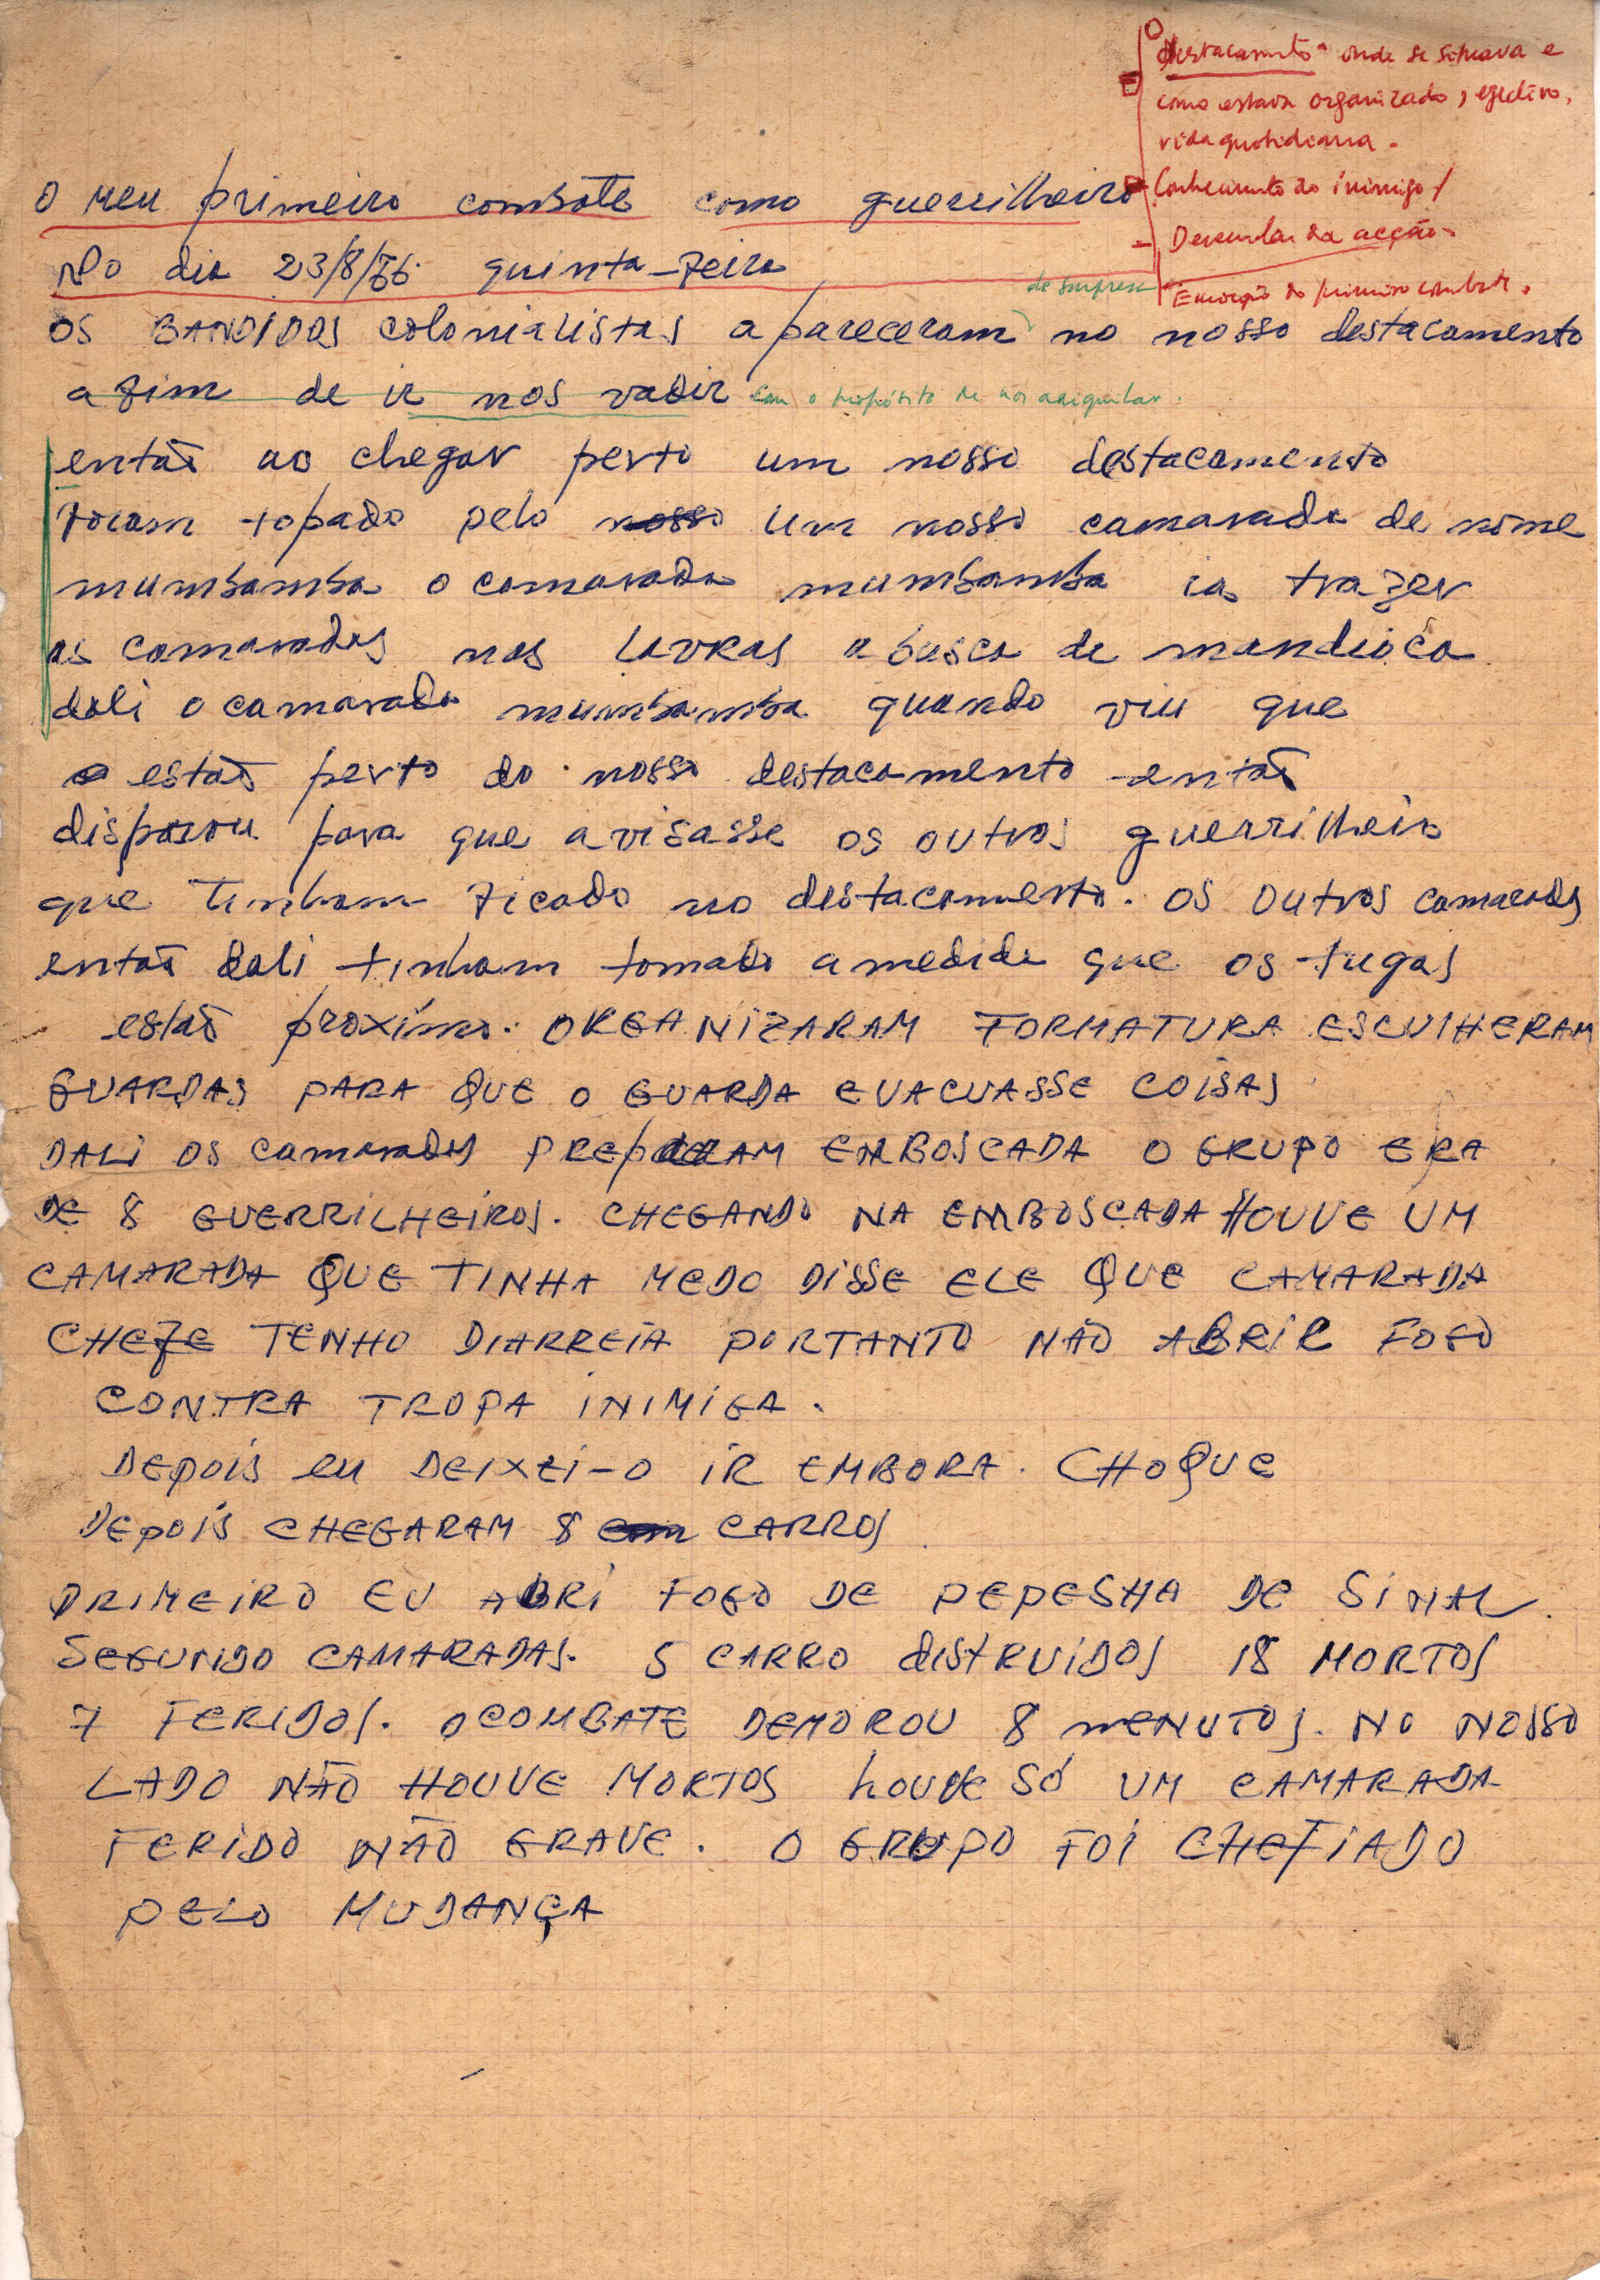 O
destacamento onde se situava e
como estava organizado, efectivo,
vida quotidiana.
Conhecimento do inimigo
- Desenrolar da acção.
Emoção do primeiro combate.
O meu primeiro combate como guerrilheiro
No dia 23/8/66 quinta-feira
de surpresa
OS BANDIDOS colonialistas apareceram no nosso destacamento
afim de ir nos vadir com o propósito de nos aniquilar.
então ao chegar perto um nosso destacamento
foram topado pelo nosso um nosso camarada de nome
mumbamba o camarada mumbamba ia trazer
os camaradas nas lavras a busca de mandioca
dali o camarada mumbamba quando viu que
estão perto do nosso destacamento então
disparou para que avisasse os outros guerrilheiro
que tinham ficado no destacamento. os outros camaradas
então dali tinham tomado amedida que os tugas
estão proximo. ORGANIZARAM FORMATURA ESCULHERAM
GUARDAS PARA QUE O GUARDA EVACUASSE COISAS
DALI OS camaradas PREPARAM EMBOSCADA O GRUPO ERA
DE 8 GUERRILHEIROS. CHEGANDO NA EMBOSCADA HOUVE UM
CAMARADA QUE TINHA MEDO DISSE ELE QUE CAMARADA
CHEFE TENHO DIARREIA PORTANTO NÃO ABRIR FOGO
CONTRA TROPA INIMIGA.
DEPOIS eu DEIXEI-O IR EMBORA. CHOQUE
DEPOIS CHEGARAM 8 com CARROS
PRIMEIRO EU ABRI FOGO DE PEPESHA DE SINAL.
SEGUNDO CAMARADAS. 5 CARRO distRUIDOS 18 MORTOS
7 FERIDOS. OCOMBATE DEMOROU 8 mENUTOS. NO NOSSO
LADO NÃO HOUVE MORTOS houve SÓ UM CAMARADA
FERIDO NÃO GRAVE. O GRUPO FOI CHEFIADO
PELO MUDANÇA